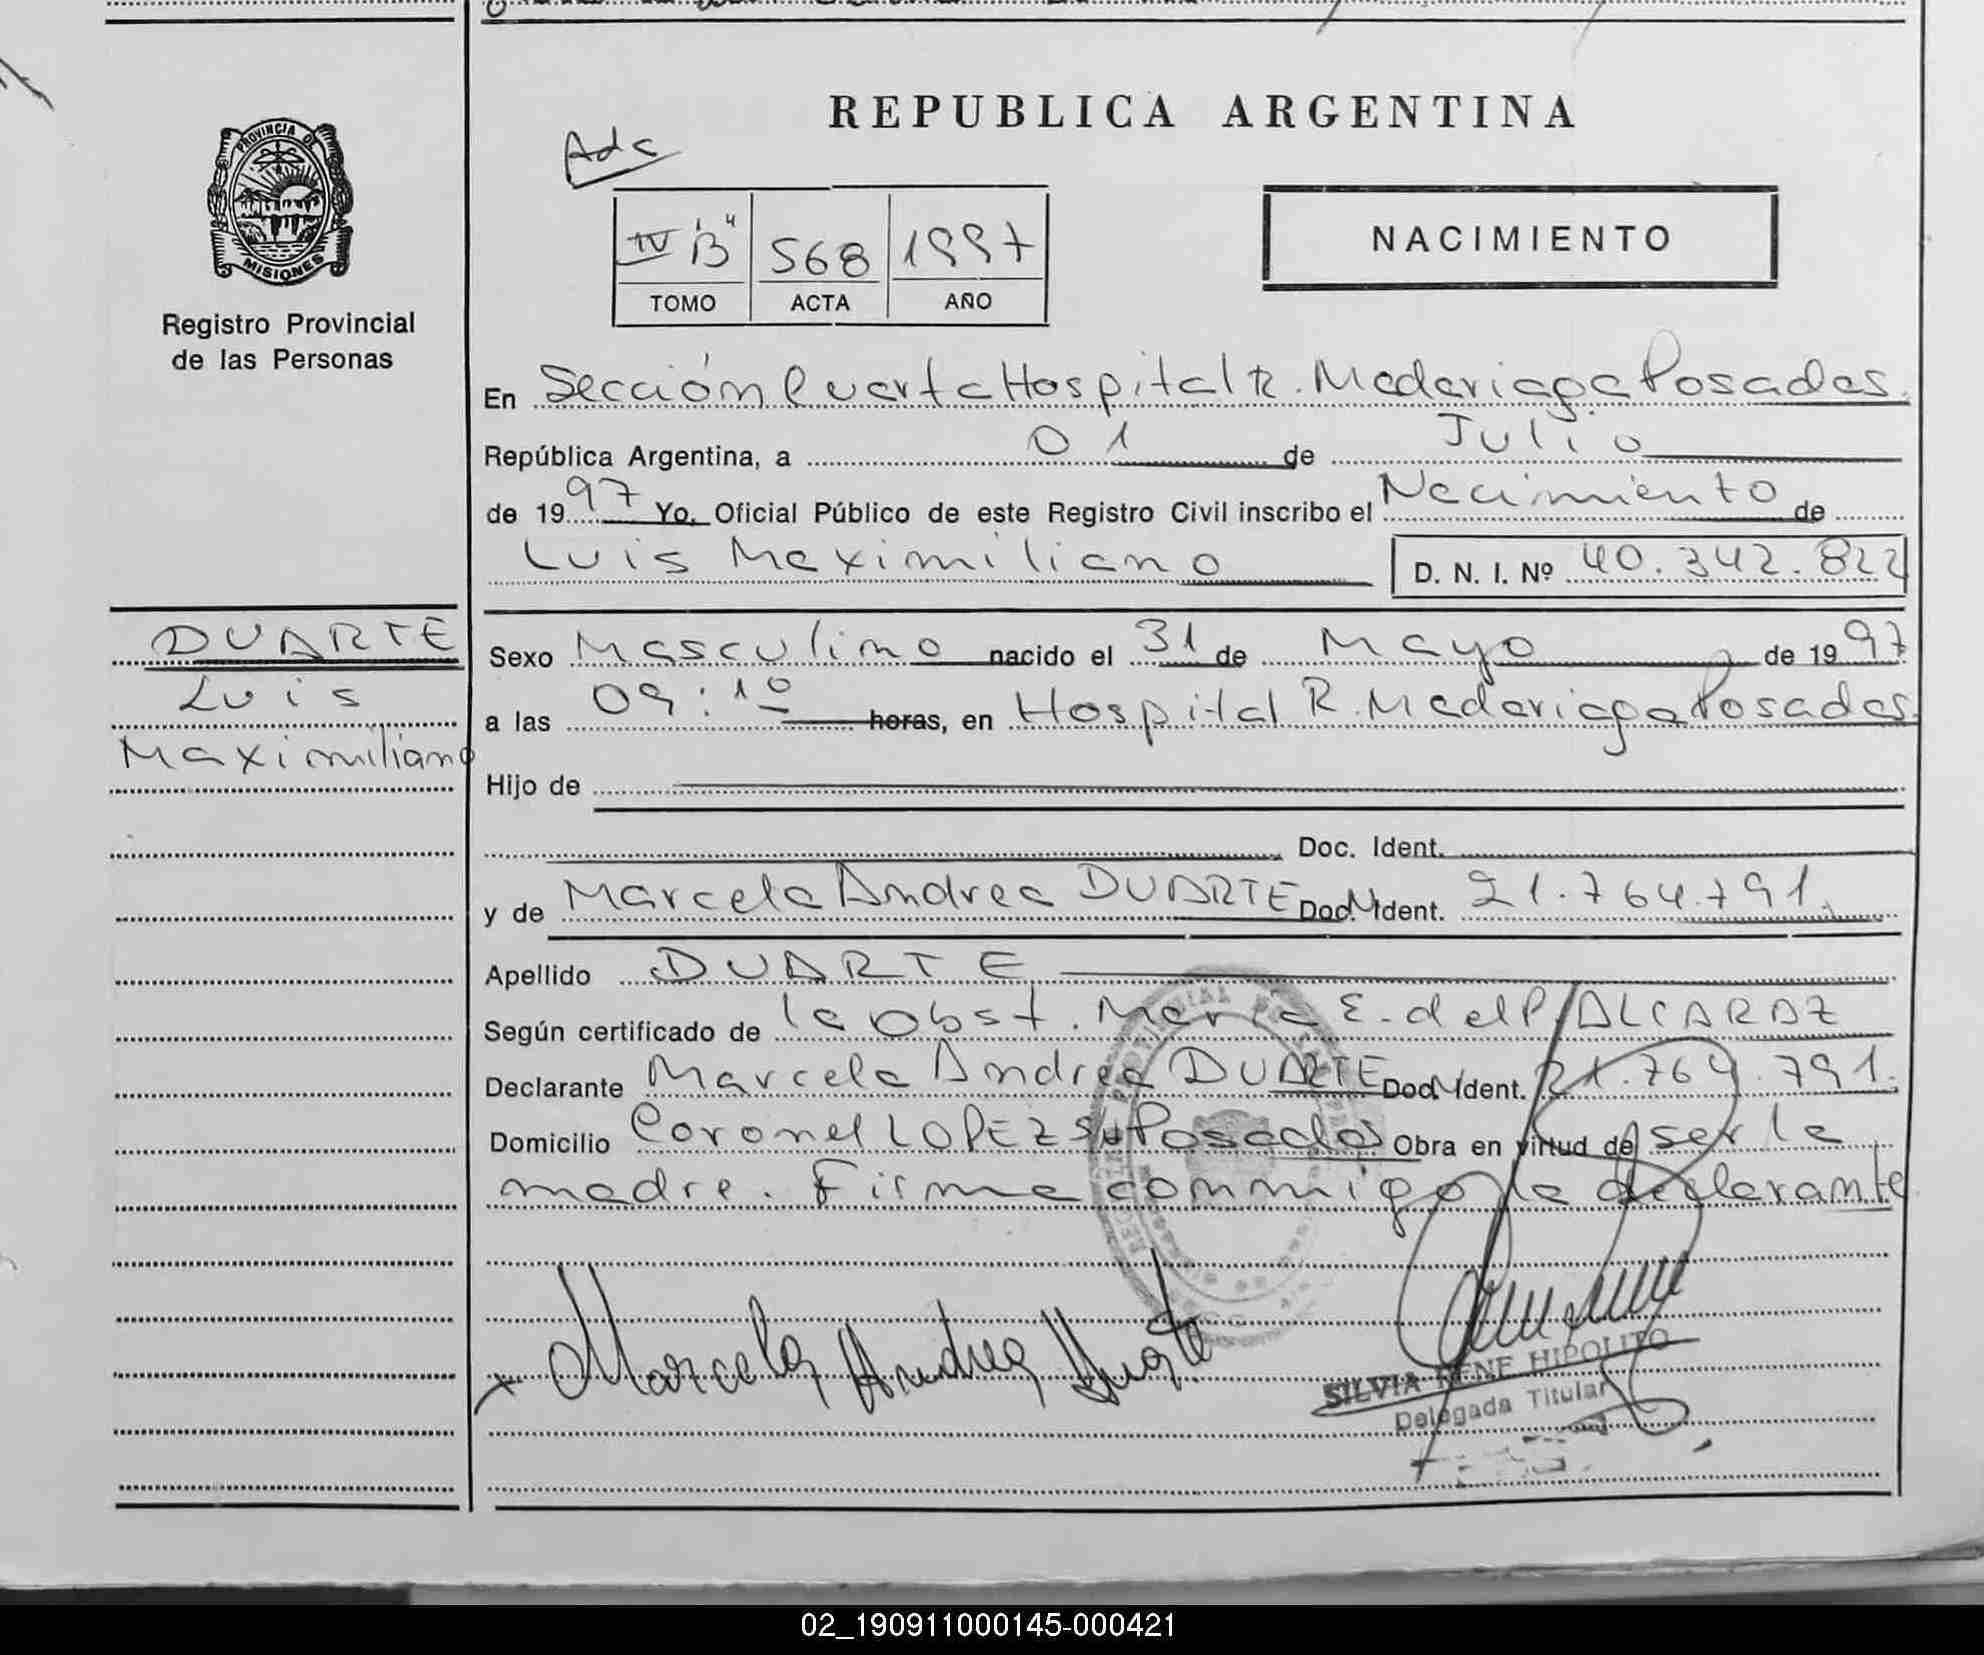 REPUBLICA ARGENTINA
PROVINCIA DE
MISIONES
Registro Provincial
de las Personas
Adc
IV "B" 568 1997
TOMO ACTA AÑO
NACIMIENTO
En Sección Cuarta Hospital R. Madariaga Posadas.
República Argentina, a 01 de Julio
de 1997 Yo, Oficial Público de este Registro Civil inscribo el Nacimiento de
Luis Maximiliano D. N. I. Nº 40.342.822
DUARTE
Luis
Maximiliano
Sexo Masculino nacido el 31 de Mayo de 1997
a las 09:10 horas, en Hospital R. Madariaga Posadas.
Hijo de
Doc. Ident.
y de Marcela Andrea DUARTE Doc. Ident. 21.764.791.
Apellido DUARTE
Según certificado de la Obst. María E. del P. ALCARAZ
Declarante Marcela Andrea DUARTE Doc. Ident. 21.764.791.
Domicilio Coronel LOPEZ S/N Posadas Obra en virtud de ser la
madre. Firma conmigo la declarante
Marcela Andrea Duarte
SILVIA RENE HIPOLITO
Delegada Titular
02_190911000145-000421